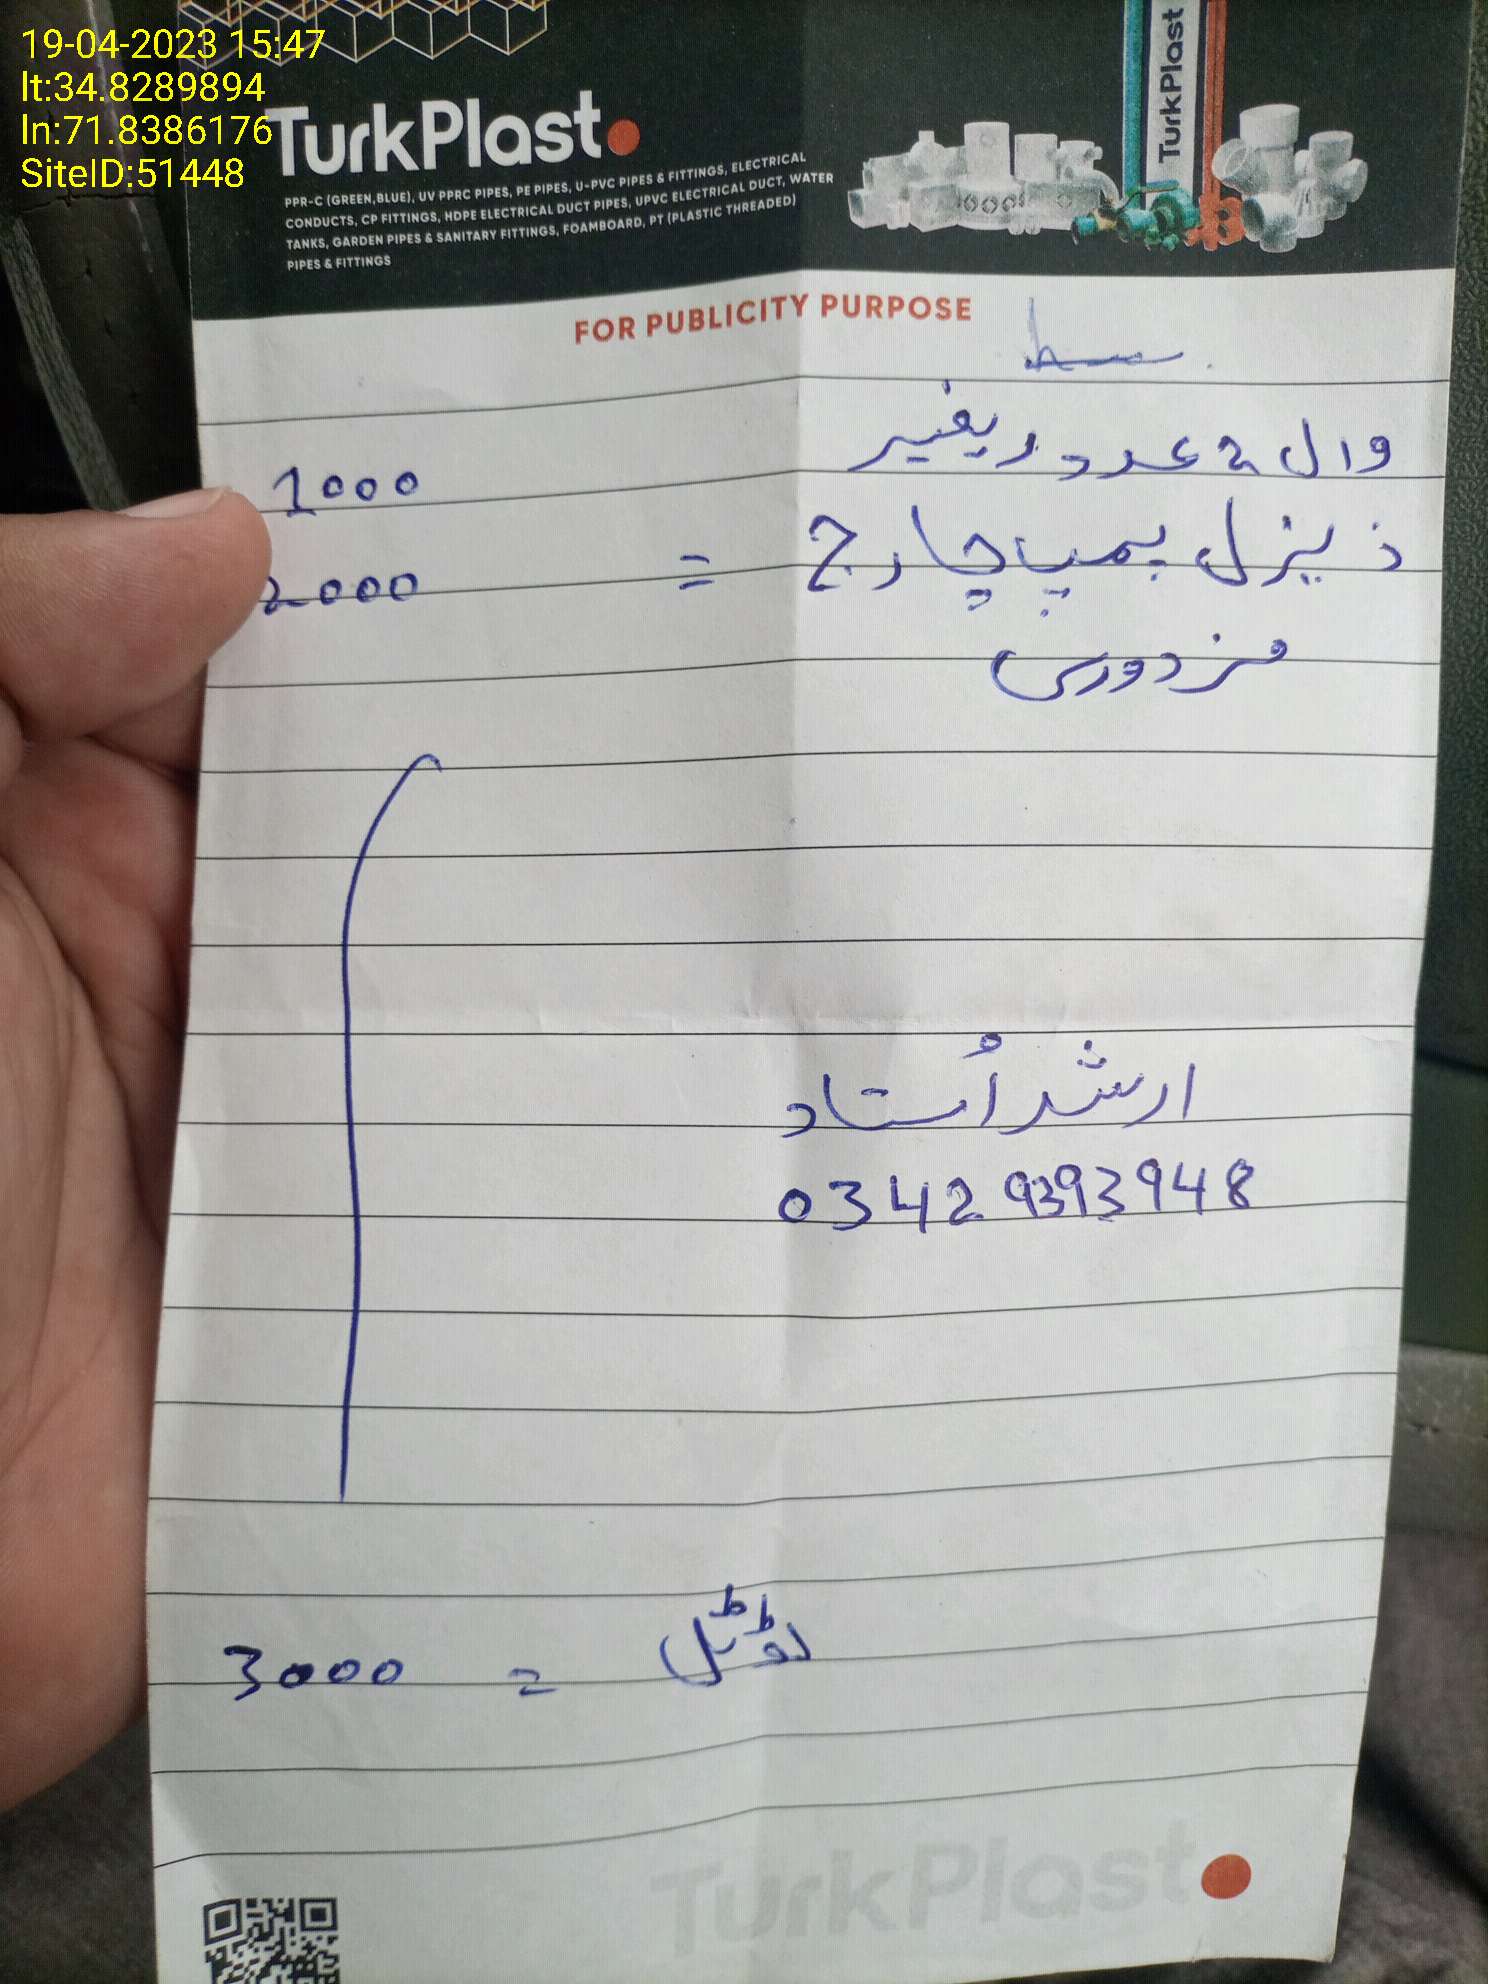 19-04-2023 15:47
lt:34.8289894
ln:71.8386176
SiteID:51448
TurkPlast
PPR-C (GREEN,BLUE), UV PPRC PIPES, PE PIPES, U-PVC PIPES & FITTINGS, ELECTRICAL
CONDUCTS, CP FITTINGS, HDPE ELECTRICAL DUCT PIPES, UPVC ELECTRICAL DUCT, WATER
TANKS, GARDEN PIPES & SANITARY FITTINGS, FOAMBOARD, PT (PLASTIC THREADED)
PIPES & FITTINGS
TurkPlast
FOR PUBLICITY PURPOSE
وال 2 عدد ریفیر
1000
ڈیزل پمپ چارج = 2000
مزدوری
ارشد اُستاد
0342 9393948
ٹوٹل = 3000
TurkPlast